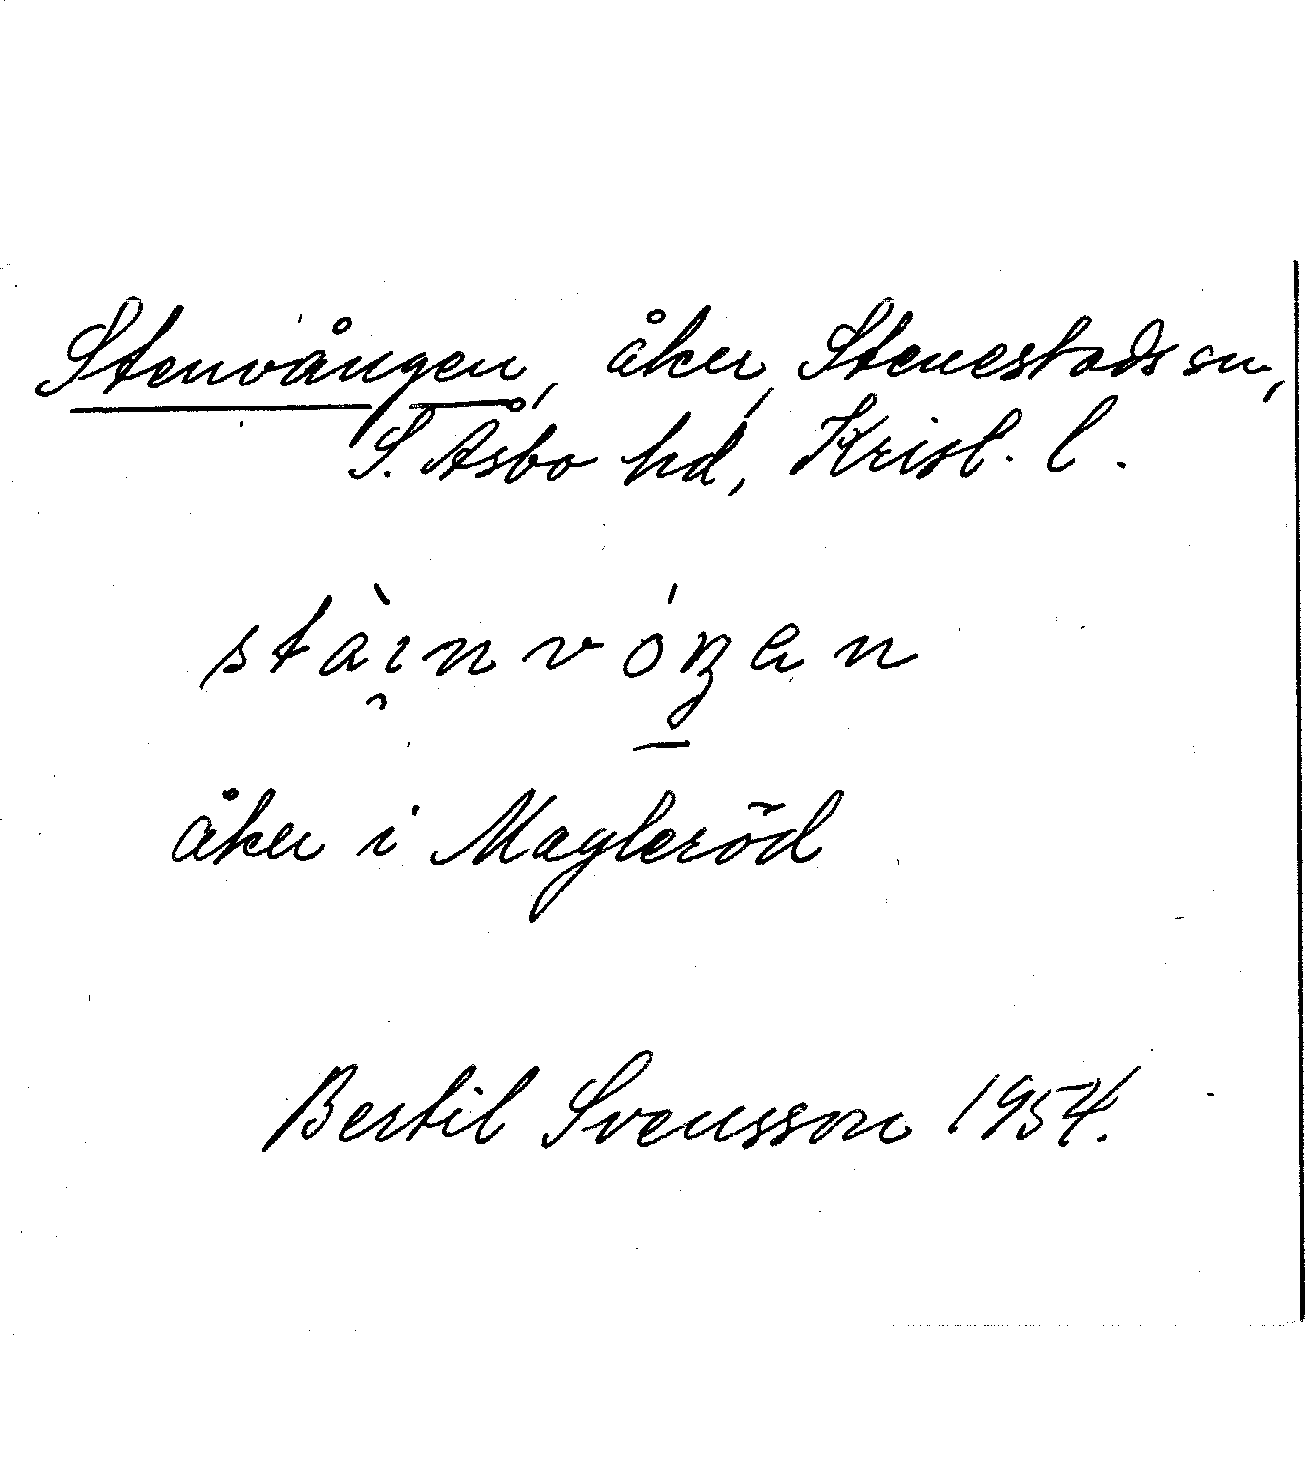 Stenvången, åker, Stenestads sn,
S. Åsbo hd, Krist. l.
stàɪnvóŋan
åker i Magleröd
Bertil Svensson 1954.